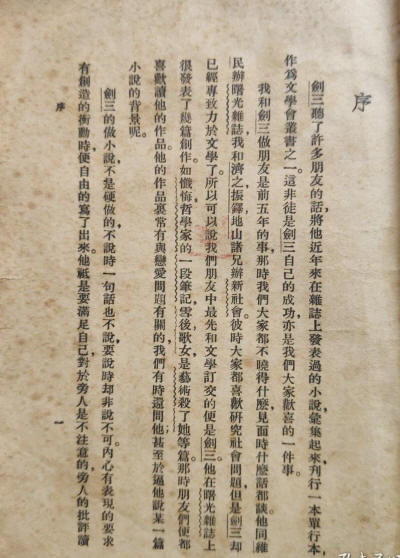 序
劍三聽了許多朋友的話，將他近年來在雜誌上發表過的小說，彙集起來，刊行一本單行本，
作為文學會叢書之一。這非徒是劍三自己的成功，亦是我們大家歡喜的一件事。
我和劍三做朋友是前五年的事，那時我們大家都不曉得什麼，見面時什麼話都談。他同維
民辦曙光雜誌，我和濟之振鐸地山諸兄辦新社會。彼時大家都喜歡研究社會問題，但是劍三却
已經專致力於文學了。所以可以說我們朋友中最先和文學訂交的便是劍三。他在曙光雜誌上
很發表了幾篇創作，如懺悔，哲學家的一段筆記，雪後，歌女，是藝術殺了她等篇。那時朋友們便都
喜歡讀他的作品。他的作品裏常有與戀愛問題有關的，我們有時還問他，甚至於逼他說某一篇
小說的背景呢。
劍三的做小說，不是硬做的，不說時一句話也不說，要說時却非說不可。內心有表現的要求，
有創造的衝動時，便自由的寫了出來。他祇是要滿足自己，對於旁人是不注意的，旁人的批評讚
序
一